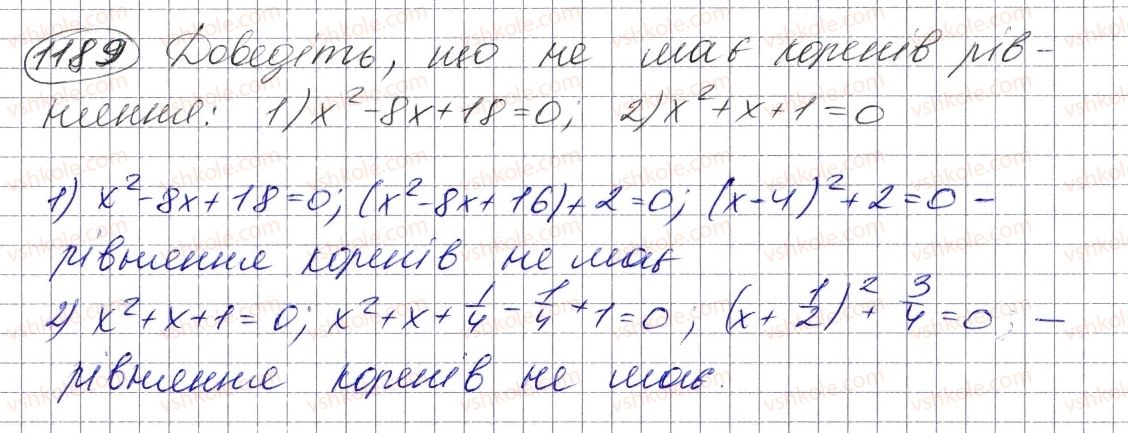 1189 Доведіть, що не має коренів рів-
няння: 1) x² - 8x + 18 = 0; 2) x² + x + 1 = 0
1) x² - 8x + 18 = 0; (x² - 8x + 16) + 2 = 0; (x - 4)² + 2 = 0 -
рівняння коренів не має
2) x² + x + 1 = 0; x² + x + 1/4 - 1/4 + 1 = 0; (x + 1/2)² + 3/4 = 0; -
рівняння коренів не має.